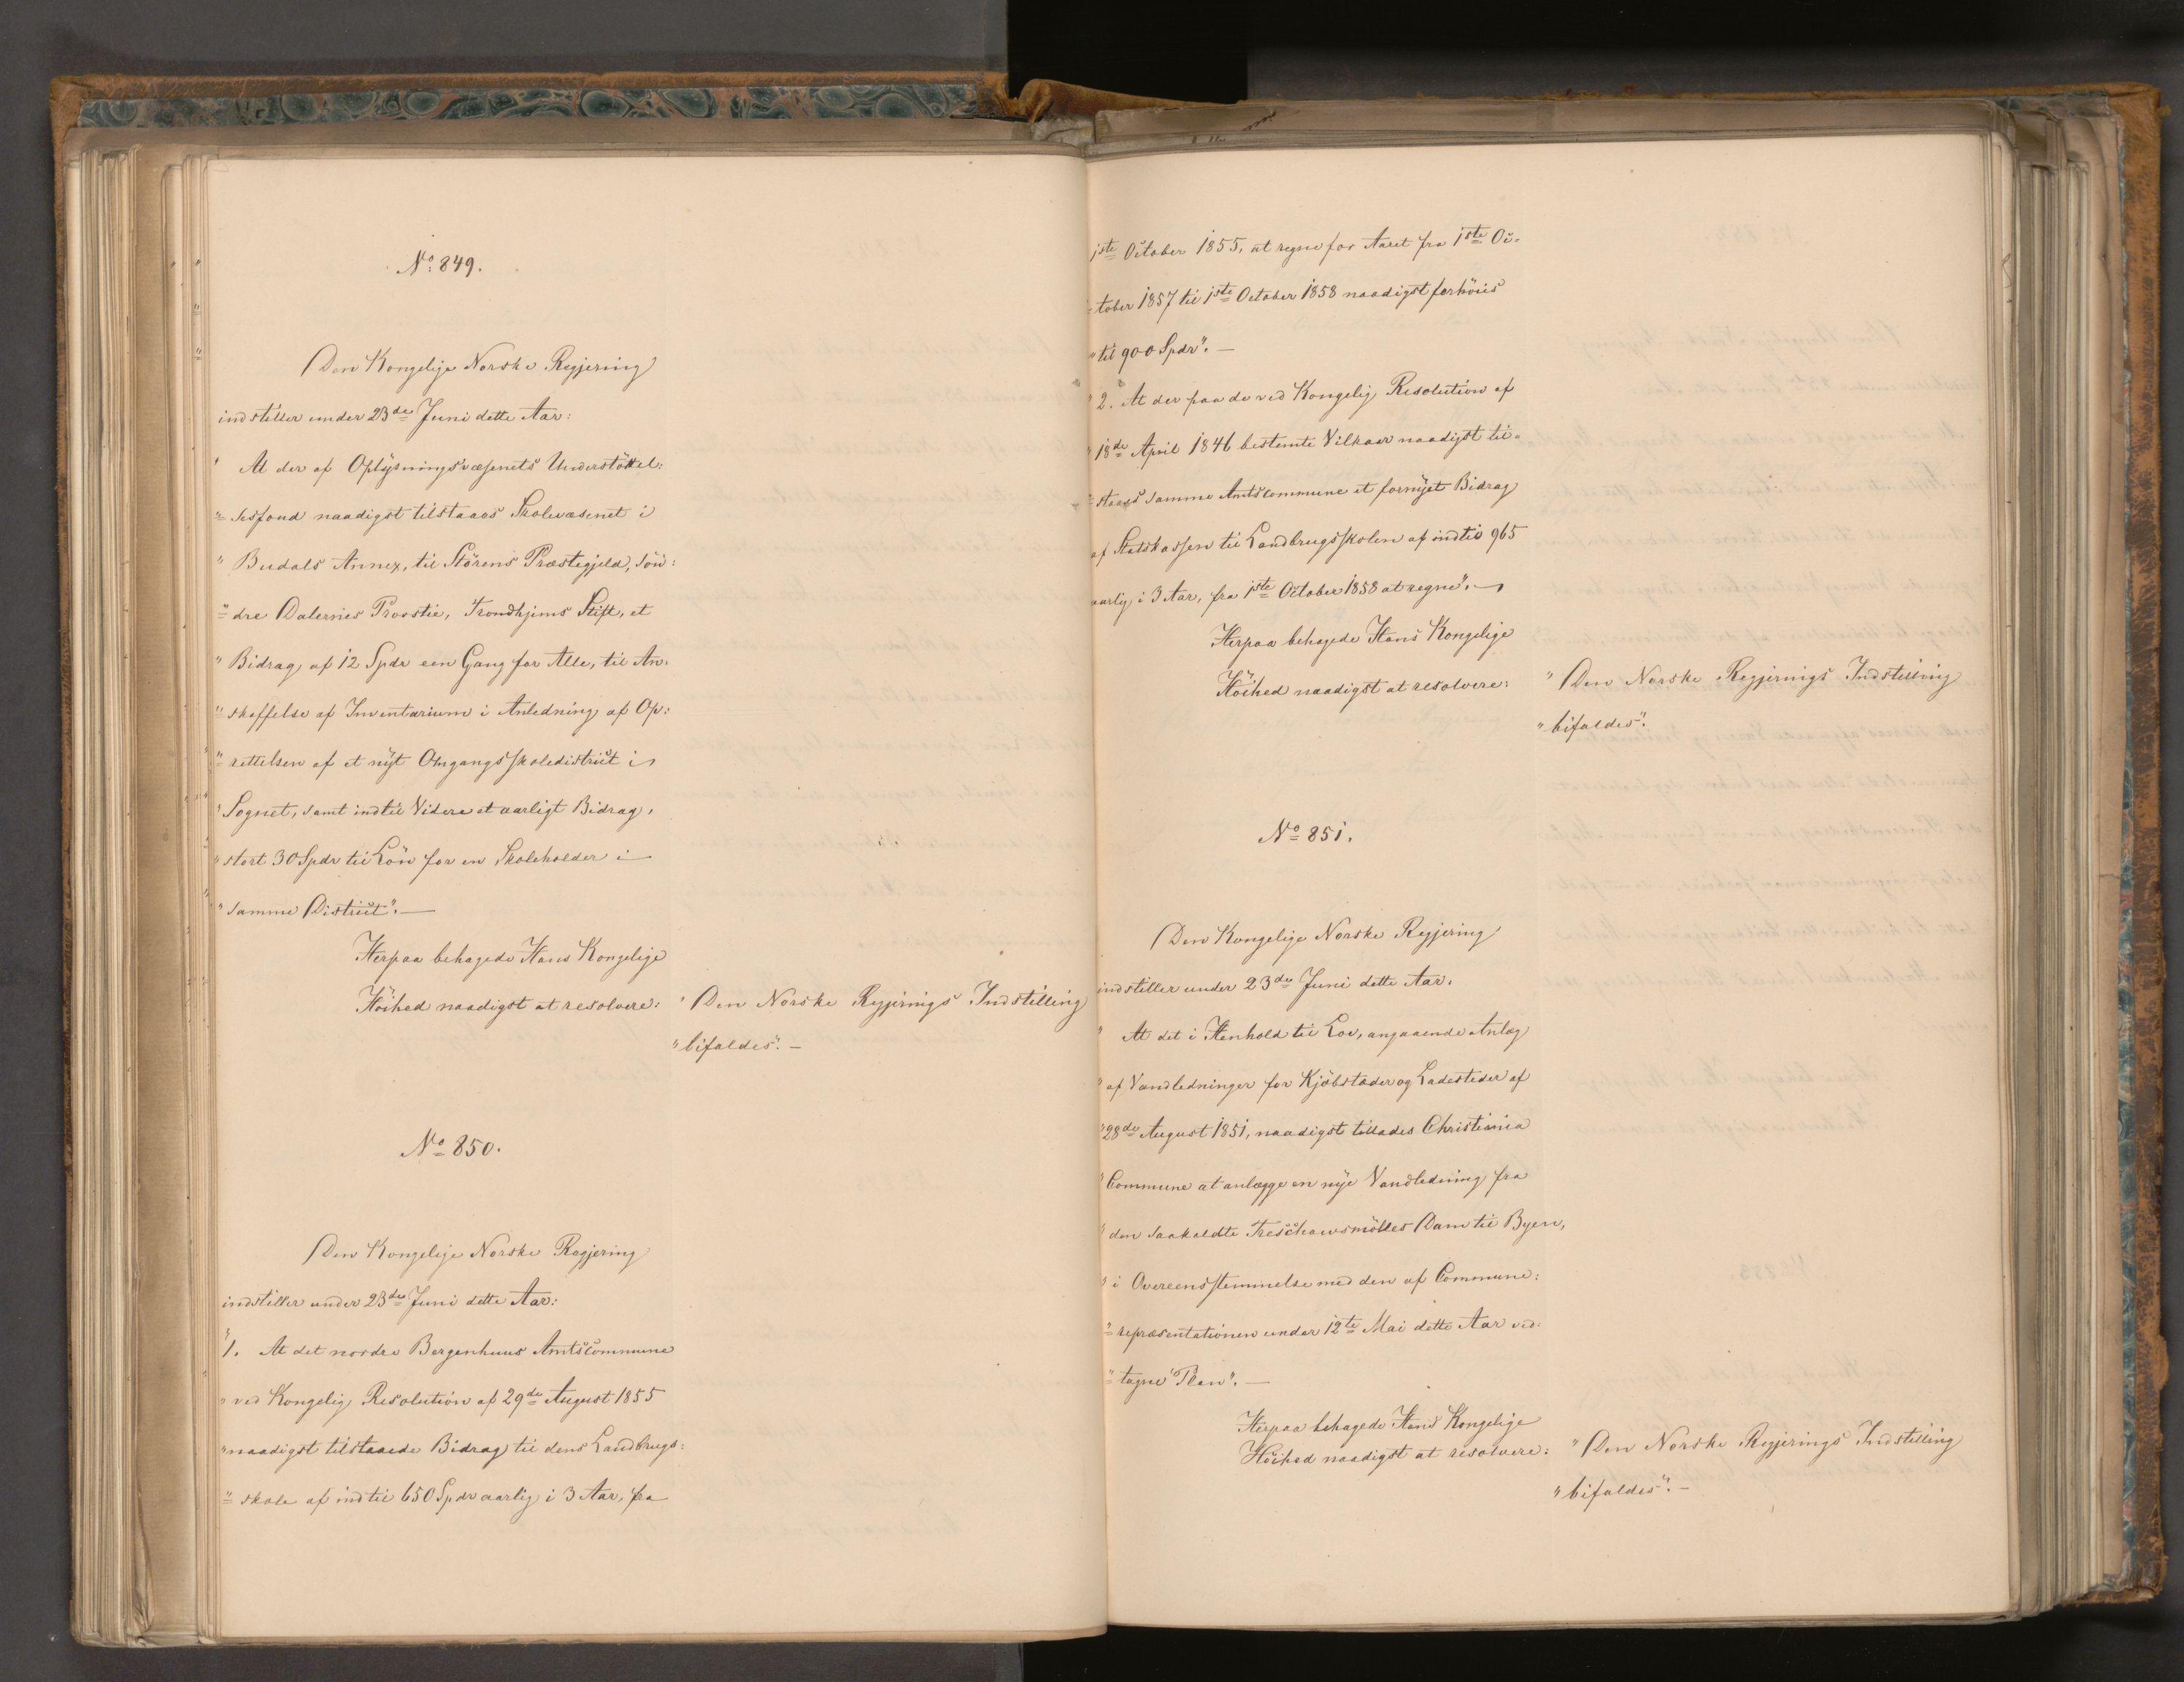 No 849.
Den Kongelige Norske Regjering
indstiller under 23de Juni dette Aar:
" At der af Oplysningsvæsenets Understöttel:
"=sesfond naadigst tilstaaes Skolevæsenet i
" Budals Annex, til Störens Præstegjeld, Sön:
"=dre Dalernes Provstie, Trondhjems Stift, et
" Bidrag af 12 Spdr een Gang for Alle, til An-
"=skaffelse af Inventarium i Anledning af Op:
"=rettelsen af et nyt Omgangsskoledistrict i
" Sognet, samt indtil Videre et aarligt Bidrag,
" stort 30 Spdr til Lön for en Skoleholder i
" samme District". —
Herpaa behagede Hans Kongelige
Höihed naadigst at resolvere: " Den Norske Regjerings Indstilling
" bifaldes". —
No 850.
Den Kongelige Norske Regjering
indstiller under 23de Juni dette Aar:
" 1. At det nordre Bergenhuus Amtscommune
" ved Kongelig Resolution af 29de August 1855
" naadigst tilstaaede Bidrag til dens Landbrugs:
"=skole af indtil 650 Spdr aarlig i 3 Aar, fra
1ste October 1855, at regne for Aaret fra 1ste Oc-
=tober 1857 til 1ste October 1858 naadigst forhöies
" til 900 Spdr". —
" 2. At der paa de ved Kongelig Resolution af
" 18de April 1846 bestemte Vilkaar naadigst til=
"=staaes samme Amtscommune et fornyet Bidrag
af Statskassen til Landbrugsskolen af indtil 965
aarlig i 3 Aar, fra 1ste October 1858 at regne". —
Herpaa behagede Hans Kongelige
Höihed naadigst at resolvere: " Den Norske Regjerings Indstilling
" bifaldes".
No 851.
Den Kongelige Norske Regjering
indstiller under 23de Juni dette Aar.
" At det i Henhold til Lov, angaaende Anlæg
" af Vandledninger for Kjöbstæder og Ladesteder af
" 28de August 1851, naadigst tillades Christiania
" Commune at anlægge en nye Vandledning fra
" den saakaldte Treschowsmölles Dam til Byen,
" i Overeensstemmelse med den af Commune:
"=repræsentationen under 12te Mai dette Aar ved:
"=tagne Plan". —
Herpaa behagede Hans Kongelige
Höihed naadigst at resolvere: " Den Norske Regjerings Indstilling
" bifaldes". —